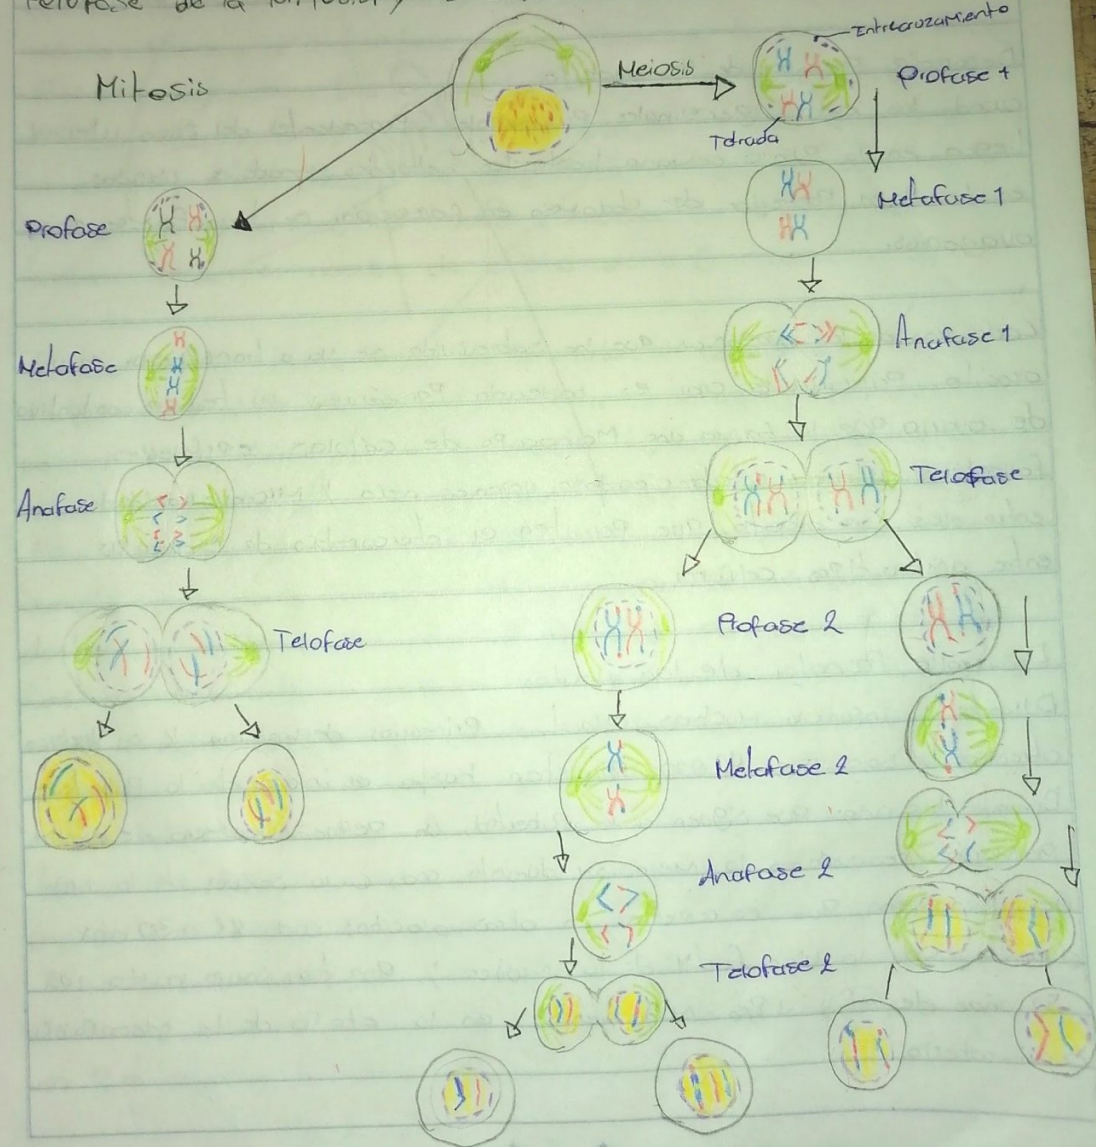 telofase de la
Mitosis
Meiosis
Entrecruzamiento
Profase 1
Tetrada
Metafase 1
Anafase 1
Telofase
Profase
Metafase
Anafase
Telofase
Profase 2
Metafase 2
Anafase 2
Telofase 2